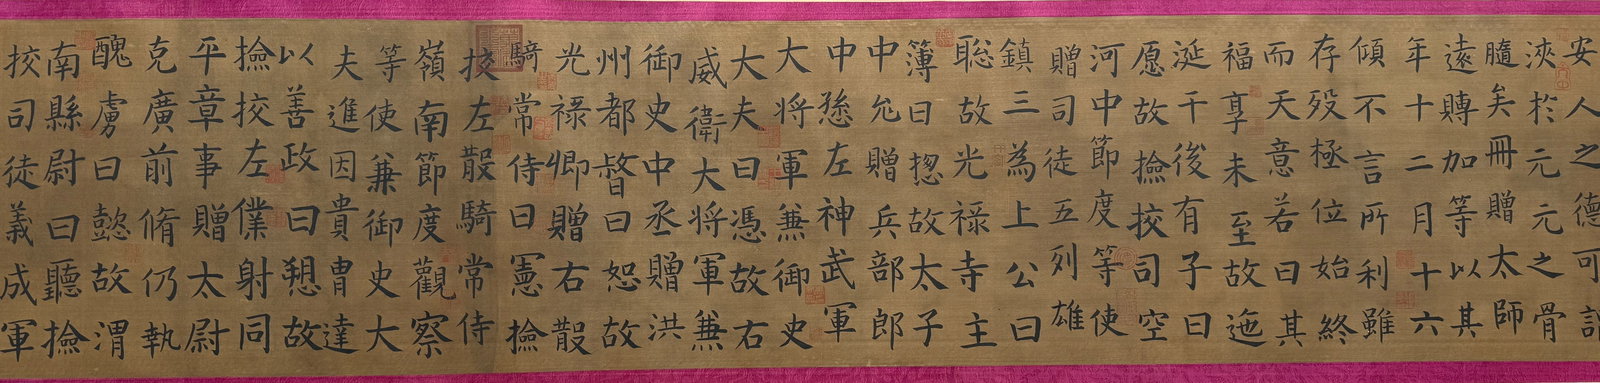 安人之德可謂
浹於元元之骨
髓矣冊贈太師
遠賻加等以其
年十二月十六
傾不言所利雖
存歿極位始終
而天意若曰其
福享未至故迤
涎于後有子曰
愿故撿挍司空
河中節度等使
贈司徒五列雄
鎮三為上公曰
聡故光禄寺主
簿曰揔故太子
中允贈兵部郎
中愻左神武軍
大将軍兼御史
大夫曰憑故右
威衛大将軍兼
御史中丞贈洪
州都督曰恕故
光禄卿贈右散
騎常侍曰憲撿
挍左散騎常侍
嶺南節度觀察
等使兼御史大
夫進因貴胄達
以善政曰愬故
撿挍左僕射同
平章事贈太尉
克廣前脩仍執
醜虜曰懿故渭
南縣尉曰聽撿
挍司徒義成軍